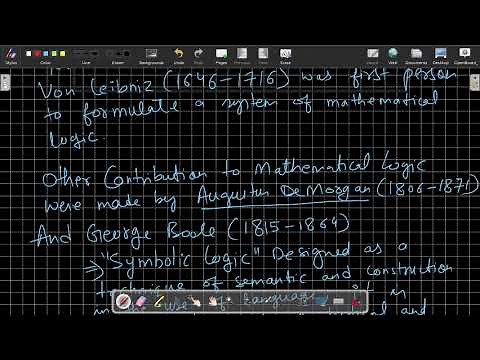 Stylus
Backgrounds
Undo
Pages
Previous
Next
Board
Web
Documents
Desktop
OpenBoard
Von Leibniz (1646-1716) was first person
to formulate a system of mathematical
logic.
Other Contribution to Mathematical Logic
were made by Augustus DeMorgan (1806-1871)
And George Boole (1815-1864)
⇒ "Symbolic Logic" Designed as a
technique of semantic and construction
use of language it in
and